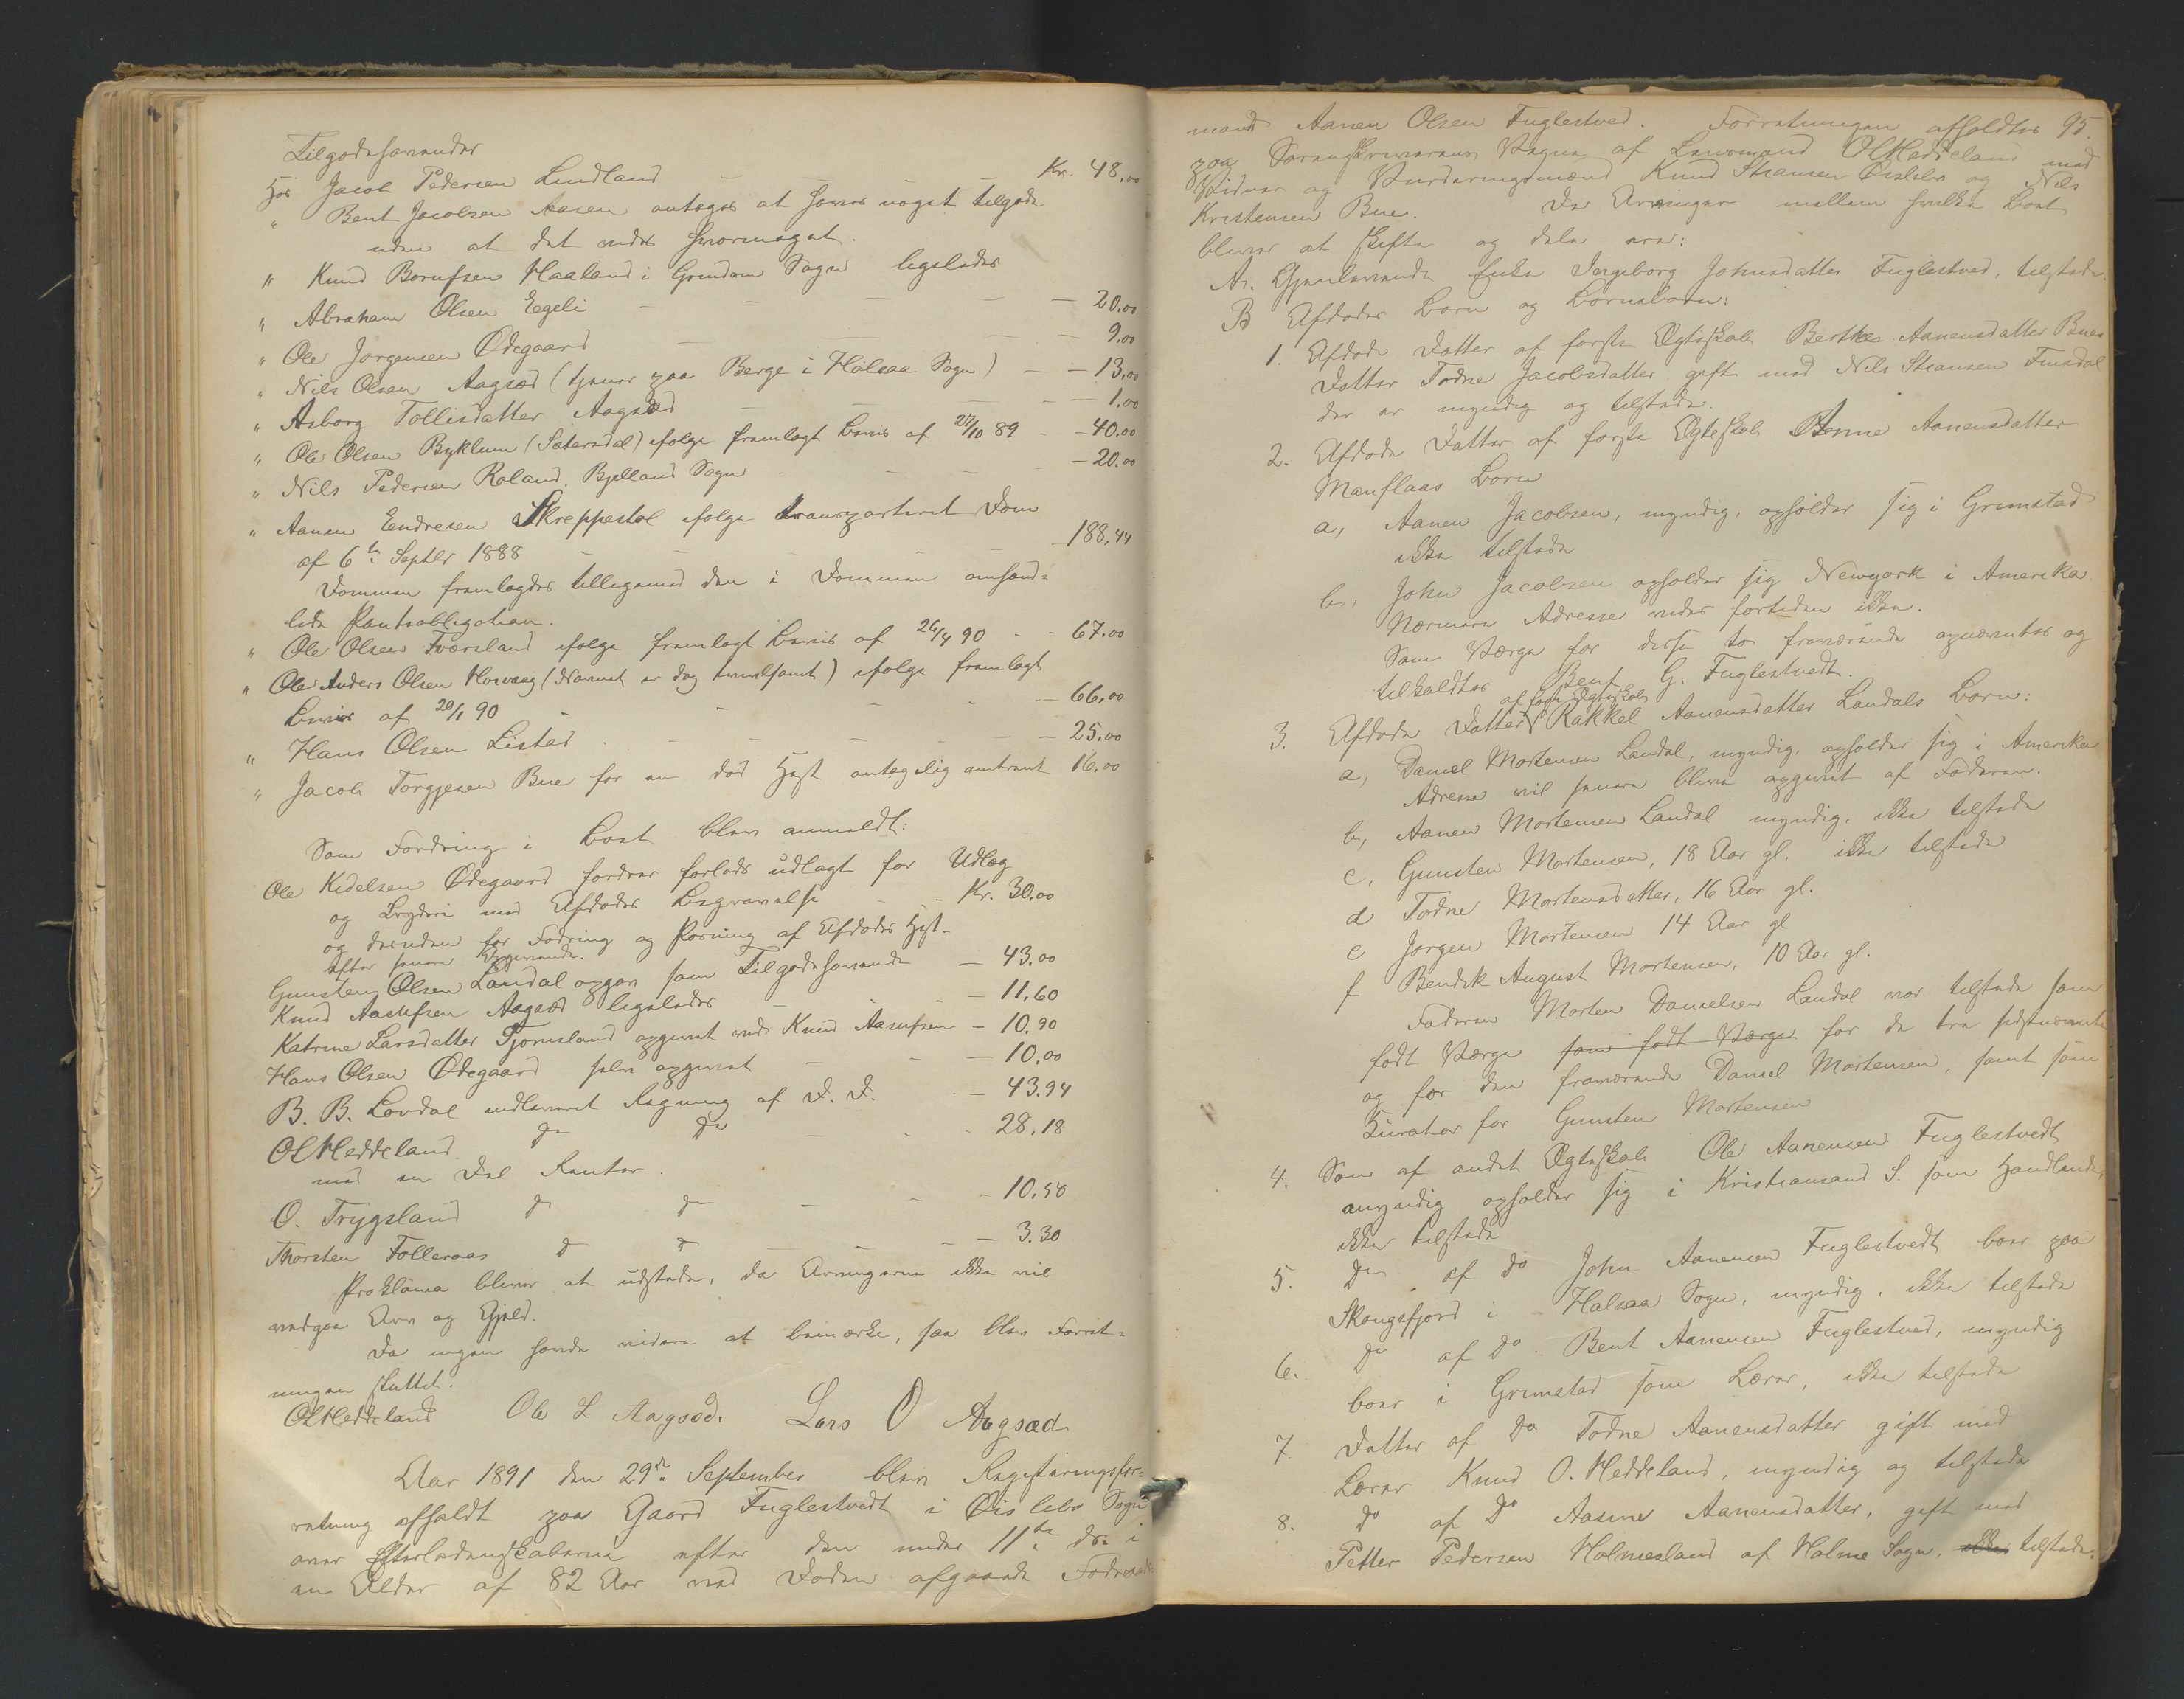 Tilgodehavender
Hos Jacob Pedersen Lindland — — Kr. 48,00
" Bent Jacobsen Aasen antages at have noget tilgode
uden at det vides hvormeget.
" Knud Bornfsen Haaland i Grindem Sogn ligeledes
" Abraham Olsen Egeli — — — — 20,00
" Ole Jørgensen Ødegaard — — — 9,00
" Nils Olsen Aagsæd (tjener paa Berge i Halsaa Sogn) — — 13,00
" Asborg Tollisdatter Aagsæd — — — 1,00
" Ole Olsen Byklum (Sætersdal) ifølge fremlagt Bevis af 27/10 89 — 40,00
" Nils Pedersen Roland, Bjelland Sogn — — — 20,00
" Aanen Endresen Skreppestøl ifølge transporteret Dom
af 6te Septbr 1888 — — — — 188,44
Dommen fremlagdes tilligemed den i Dommen omhand-
lede Pantobligation.
" Ole Olsen Tværsland ifølge fremlagt Bevis af 26/4 90 - - 67,00
" Ole Anders Olsen Horvaag (Navnet er dog tvivlsomt) ifølge fremlagt
Bevis af 20/1 90 - - - - — 66,00
" Hans Olsen Listad . — — — — 25,00
" Jacob Torgjesen Bue for en død Hest antagelig omtrent 16,00
Som Fordring i Boet blev anmeldt:
Ole Kedelsen Ødegaard fordrer forlods udlagt for Udlæg
og Bryderi med Afdødes Begravelse - - Kr. 30,00
og desuden for Fodring og Pasning af Afdødes Hest-
efter senere Opgivende.
Gunsteng Olsen Landal opgav som Tilgodehavende — 43.00
Knud Aasulfsen Aagsæd ligeledes - - — 11,60
Katrine Larsdatter Tjomsland opgivet ved Knud Aasulfsen — 10,90
Hans Olsen Ødegaard selv opgivet — — 10,00
B. B. Løvdal indleveret Regning af D. D. - — 43.94
OlHeddeland do do — - - 28,18
med en Del Renter.
O. Trygsland do do — - — 10,50
Thorsten Folleraas do do — — — 3.30
Proklama bliver at udstede, da Arvingerne ikke vil
vedgaa Arv og Gjæld.
Da ingen havde videre at bemærke, saa blev Forret-
ningen sluttet.
OlHeddeland Ole L Aagsæd. Lars O Aagsæd
Aar 1891 den 29de September blev Registreringsfor-
retning afholdt paa Gaard Fuglestvedt i Øislebø Sogn
over Efterladenskaberne efter den under 11te ds. i
en Alder af 82 Aar ved Døden afgaaede Føderaads-
95.
mand Aanen Olsen Fuglestved. Forretningen afholdtes
paa Sorenskriverens Vegne af Lensmand OlHeddeland med
Vidner og Vurderingsmænd Knud Stiansen Øislebø og Nils
Kristensen Bue. De Arvinger mellem hvilke Boet
bliver at skifte og dele var:
A. Gjenlevende Enke Ingeborg Johnsdatter Fuglestved, tilstede.
B Afdødes Børn og Børnebørn:
1. Afdøde Datter af første Ægteskab Berthe Aanensdatter Bues
Datter Todne Jacobsdatter gift med Nils Stiansen Finsdal
der er myndig og tilstede.
2. Afdøde Datter af første Ægteskab Anne Aanensdatter
Manflaas Børn
a, Aanen Jacobsen, myndig, opholder sig i Grimstad
ikke tilstede
b, John Jacobsen opholder sig Newyork i Amerika
Nærmere Adresse vides fortiden ikke.
Som Værge for disse to fraværende opnævntes og
tilkaldtes Bent G. Fuglestvedt.
3. Afdøde Datter af første Ægteskab Rakkel Aanensdatter Landals Børn:
a, Daniel Mortensen Landal, myndig, opholder sig i Amerika
Adresse vil senere blive opgivet af Faderen.
b, Aanen Mortensen Landal myndig, ikke tilstede
c, Gunsten Mortensen, 18 Aar gl. ikke tilstede
d Todne Mortensdatter, 16 Aar gl.
e Jørgen Mortensen 14 Aar gl
f Bendik August Mortensen, 10 Aar gl.
Faderen Morten Danielsen Landal var tilstede som
født Værge som født Værge for de tre sidstnævnte
og for den fraværende Daniel Mortensen, samt som
Kurator for Gunsten Mortensen
4. Søn af andet Ægteskab Ole Aanensen Fuglestvedt
myndig opholder sig i Kristiansand S. som Handlende,
ikke tilstede
5. do af do John Aanensen Fuglestvedt boer paa
Skougsfjord i Halsaa Sogn, myndig, ikke tilstede
6. do af do Bent Aanensen Fuglestved, myndig
boer i Grimstad som Lærer, ikke tilstede
7. Datter af do Todne Aanensdatter gift med
Lærer Knud O. Heddeland, myndig og tilstede
8. do af do Aasine Aanensdatter, gift med
Petter Pedersen Holmesland af Holme Sogn, ikke tilstede.